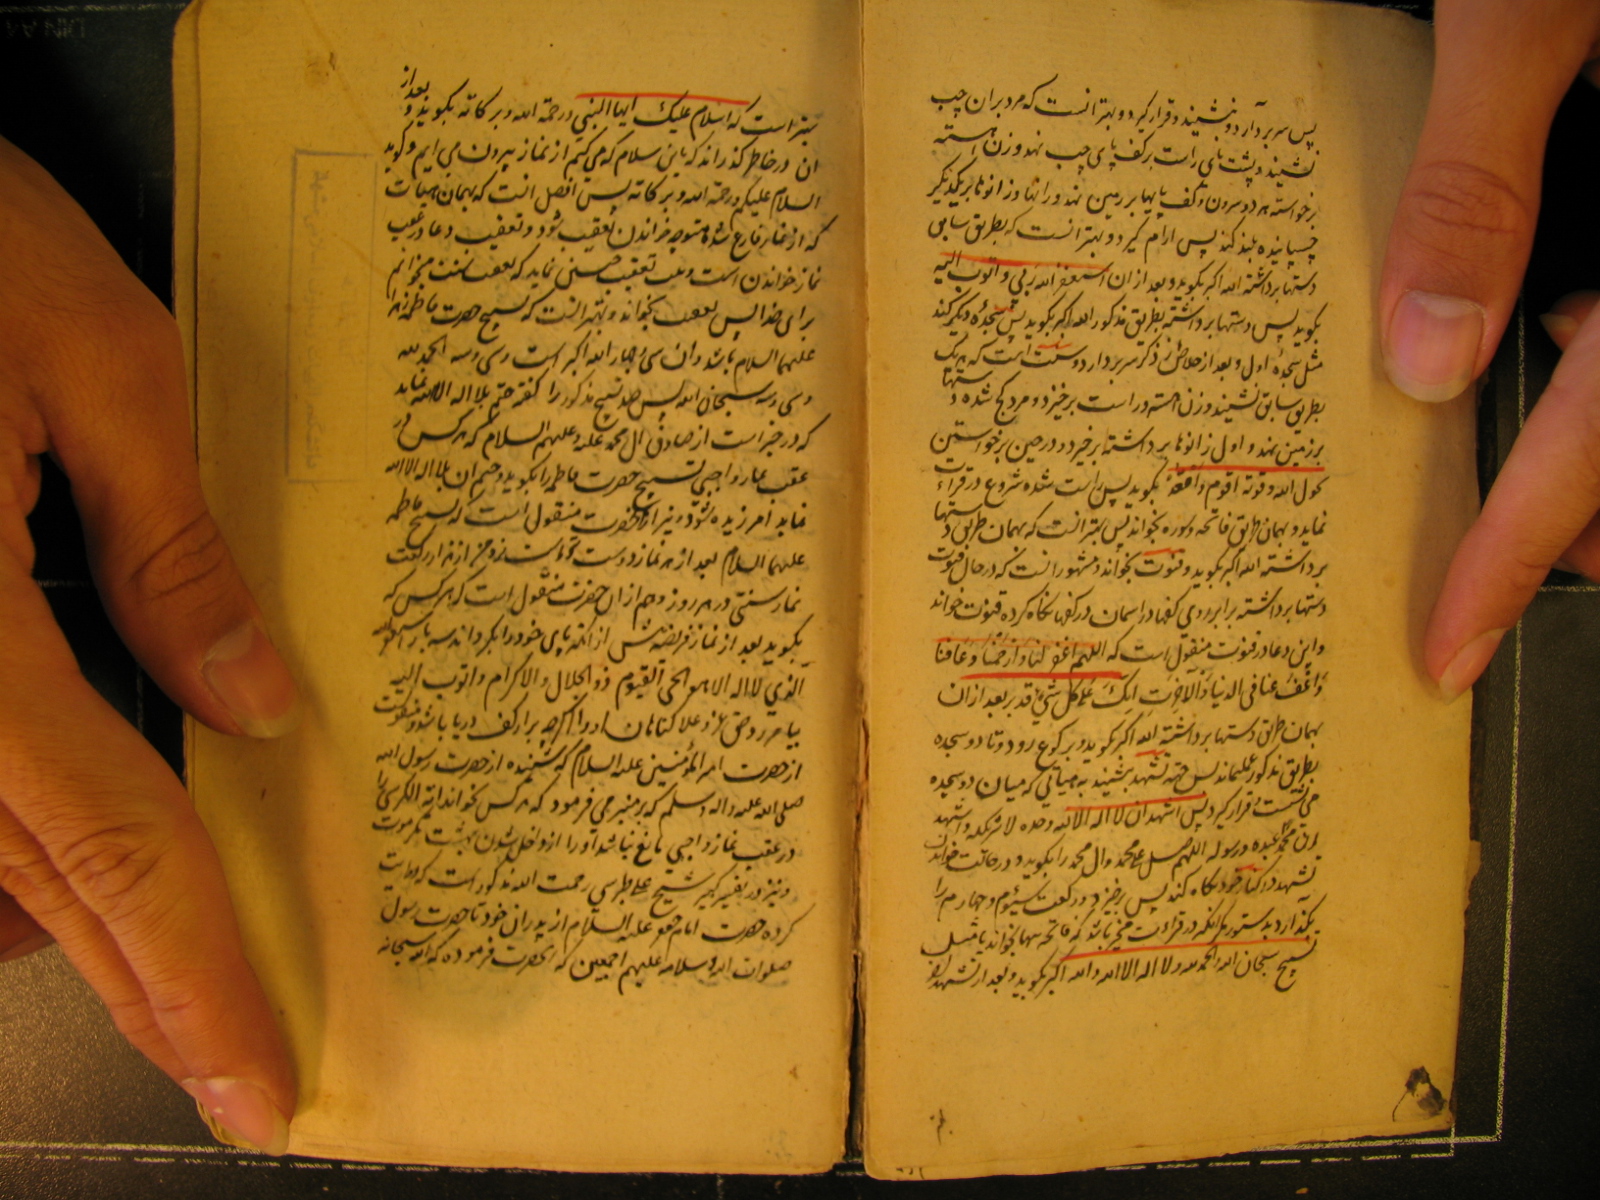 پس سر بردارد و بنشیند و قرار گیرد و بهتر انست که مرد بران چپ
نشیند و پشت پای راست بر کف پای چپ نهد و زن
برخواسته هر دو سرون و کف پایها بر زمین نهد و رانها و زانوها بر یکدیگر
چسپانیده بلند کند پس ارام گیرد و بهتر انست که بطریق سابق
دستها برداشته الله اکبر بگوید و بعد از ان استغفر الله ربی و اتوب الیه
بگوید پس دستها برداشته بطریق مذکور الله اکبر بگوید پس سجدهٔ دیگر کند
مثل سجدهٔ اول و بعد از خلاص از ذکر سر بردارد و سنت است که
بطریق سابق نشیند و زن اهسته و راست برخیزد و مرد کج شده دستها
بر زمین نهد و اول زانوها برداشته برخیزد و در حین برخواستن
بحول الله و قوته اقوم و اقعد بگوید پس راست شده شروع در قراءة
نماید و بهمان طریق فاتحه و سوره بخواند پس بهتر انست که بهمان طریق دستها
برداشته الله اکبر بگوید و قنوت بخواند و مشهور انست که در حال قنوت
دستها برداشته برابر روی کفها در اسمان در کفها نگاه کرده قنوت خواند
و این دعا در قنوت منقول است که اللهم اغفر لنا و ارحمنا و عافنا
و اعف عنا فی الدنیا و الاخرت انک علی کل شیء قدیر بعد از ان
بهمان طریق دستها برداشته الله اکبر بگوید و برکوع رود و تا دو سجده
بطریق مذکور پس جهة تشهد بنشیند به هیأتی که میان دو سجده
می نشست و قرار گیرد پس اشهد ان لا اله الا الله وحده لا شریک له و اشهد
ان محمدا عبده و رسوله اللهم صل علی محمد و ال محمد را بگوید و در حالت خواندن
تشهد در کنار خود نگاه کند پس برخیزد و رکعت سیوم و چهارم را
بگذارد بدستور مگر انکه در قراءت مخیر باشد که فاتحه تنها بخواند یا مثل
تسبیح سبحان الله و الحمد لله و لا اله الا الله و الله اکبر بگوید و بعد از تشهد
بهتر است که السلام علیک ایها النبی و رحمة الله و برکاته بگوید و بعد از
ان در خاطر گذراند که باین سلام که می کنیم از نماز بیرون می ایم و گوید
السلام علیکم و رحمة الله و برکاته پس افضل انست که بهمان هیات
که از نماز فارغ شده متوجه خواندن تعقیب شود و تعقیب دعا در عقب
نماز خواندن است و نیت تعقیب چنین نماید که تعقیب سنت میخوانم
برای خدا پس تعقیب بخواند و بهتر انست که تسبیح حضرت فاطمه زهرا
علیها السلام باشد و ان سی و چهار الله اکبر است و سی و سه الحمد لله
و سی و سه سبحان الله پس تسبیح مذکور را گفته ختم بلا اله الا الله نماید
که در خبر است از صادق ال محمد علیه و علیهم السلام که هر کس در
عقب نماز واجبی تسبیح حضرت فاطمه را بگوید و ختم ان بلا اله الا الله
نماید امرزیده شود و نیز از انحضرت منقول است که تسبیح فاطمه
علیها السلام بعد از هر نماز دوست تر است نزد من از هزار رکعت
نماز سنتی در هر روز و هم از ان حضرت منقول است که هر کس که
بگوید بعد از نماز فریضه پیش از انکه پای خود را بگرداند سه بار استغفر الله
الذی لا اله الا هو الحی القیوم ذو الجلال و الاکرام و اتوب الیه
بیامرزد حق عز و علا گناهان او را اگرچه برابر کف دریا باشد و منقولست
از حضرت امیر المؤمنین علیه السلام که شنیده از حضرت رسول الله
صلی الله علیه و اله و سلم که بر منبر می فرمود که هر کس بخواند ایة الکرسی را
در عقب نماز واجبی مانع نباشد او را از داخل شدن بهشت مگر موت
و نیز در تفسیر کبیر شیخ علی طبرسی رحمت الله مذکور است که روایت
کرده حضرت امام جعفر علیه السلام از پدران خود تا حضرت رسول
صلوات الله و سلامه علیهم اجمعین که انحضرت فرموده که الله سبحانه